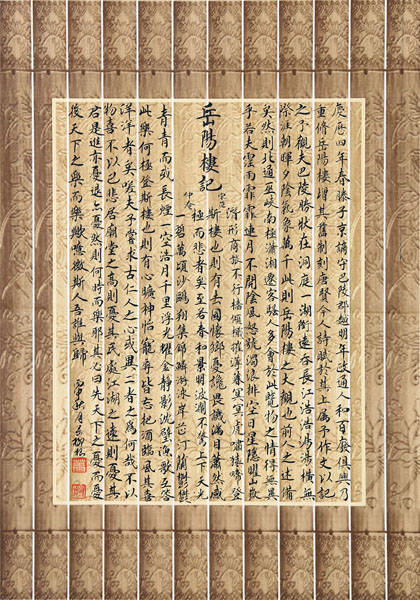 慶曆四年春滕子京謫守巴陵郡越明年政通人和百廢俱興乃
重修岳陽樓增其舊制刻唐賢今人詩賦於其上属予作文以記
之予觀夫巴陵勝狀在洞庭一湖銜遠吞長江浩浩湯湯橫無
際涯朝暉夕陰氣象萬千此則岳陽樓之大觀也前人之述備
矣然則北通巫峽南極瀟湘遷客騷人多會於此覽物之情得無異
乎若夫霪雨霏霏連月不開陰風怒號濁浪排空日星隱曜山岳
岳陽樓記
宋范
仲淹
潛形商旅不行檣傾楫摧薄暮冥冥虎嘯猿啼登
斯樓也則有去國懷鄉憂讒畏譏滿目蕭然感
極而悲者矣至若春和景明波瀾不驚上下天光
一碧萬頃沙鷗翔集錦鱗游泳岸芷汀蘭郁郁
青青而或長煙一空浩月千里浮光耀金靜影沉璧漁歌互答
此樂何極登斯樓也則有心曠神怡寵辱皆忘把酒臨風其喜
洋洋者矣嗟夫予嘗求古仁人之心或異二者之為何哉不以
物喜不以己悲居廟堂之高則憂其民處江湖之遠則憂其
君是進亦憂退亦憂然則何時而樂耶其必曰先天下之憂而憂
後天下之樂而樂歟噫微斯人吾誰與歸
丙申秋月